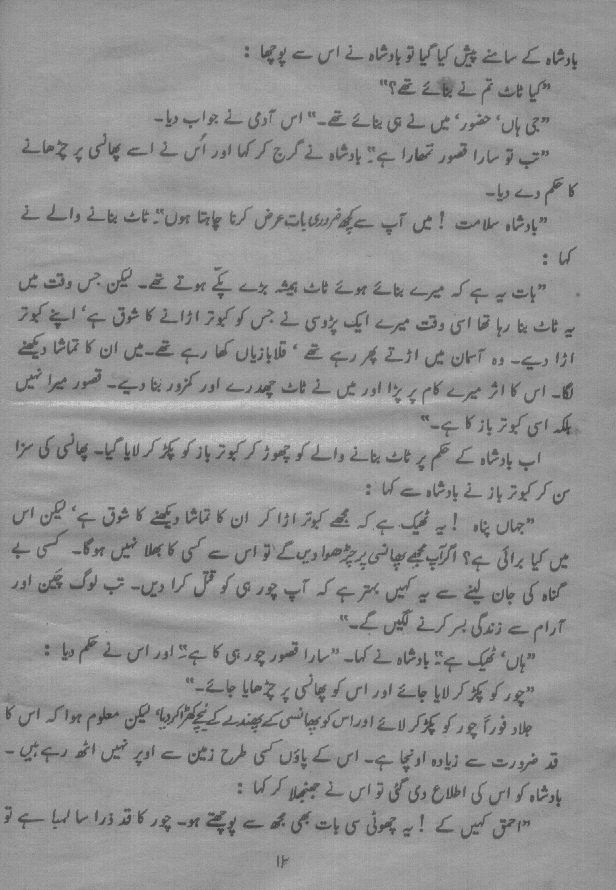 بادشاہ کے سامنے پیش کیا گیا تو بادشاہ نے اس سے پوچھا :
”کیا ٹاٹ تم نے بنائے تھے؟“
”جی ہاں، حضور، میں نے ہی بنائے تھے۔“ اس آدمی نے جواب دیا۔
”تب تو سارا قصور تمھارا ہے“۔ بادشاہ نے گرج کر کہا اور اُس نے اسے پھانسی پر چڑھانے
کا حکم دے دیا۔
”بادشاہ سلامت ! میں آپ سے کچھ ضروری بات عرض کرنا چاہتا ہوں“۔ ٹاٹ بنانے والے نے
کہا :
”بات یہ ہے کہ میرے بنائے ہوئے ٹاٹ ہمیشہ بڑے پکّے ہوتے تھے۔ لیکن جس وقت میں
یہ ٹاٹ بنا رہا تھا اسی وقت میرے ایک پڑوسی نے جس کو کبوتر اڑانے کا شوق ہے، اپنے کبوتر
اڑا دیے۔ وہ آسمان میں اڑتے پھر رہے تھے ، قلابازیاں کھا رہے تھے۔ میں ان کا تماشا دیکھنے
لگا۔ اس کا اثر میرے کام پر پڑا اور میں نے ٹاٹ چھدرے اور کمزور بنا دیے۔ قصور میرا نہیں
بلکہ اسی کبوتر باز کا ہے۔“
اب بادشاہ کے حکم پر ٹاٹ بنانے والے کو چھوڑ کر کبوتر باز کو پکڑ کر لایا گیا۔ پھانسی کی سزا
سن کر کبوتر باز نے بادشاہ سے کہا :
”جہاں پناہ ! یہ ٹھیک ہے کہ مجھے کبوتر اڑا کر ان کا تماشا دیکھنے کا شوق ہے، لیکن اس
میں کیا برائی ہے؟ اگر آپ مجھے پھانسی پر چڑھوا دیں گے تو اس سے کسی کا بھلا نہیں ہوگا۔ کسی بے
گناہ کی جان لینے سے یہ کہیں بہتر ہے کہ آپ چور ہی کو قتل کرا دیں۔ تب لوگ چین اور
آرام سے زندگی بسر کرنے لگیں گے۔“
”ہاں، ٹھیک ہے“۔ بادشاہ نے کہا۔ ”سارا قصور چور ہی کا ہے“۔ اور اس نے حکم دیا :
”چور کو پکڑ کر لایا جائے اور اس کو پھانسی پر چڑھایا جائے۔“
جلاد فوراً چور کو پکڑ کر لائے اور اس کو پھانسی کے پھندے کے نیچے کھڑا کر دیا، لیکن معلوم ہوا کہ اس کا
قد ضرورت سے زیادہ اونچا ہے۔ اس کے پاؤں کسی طرح زمین سے اوپر نہیں اٹھ رہے ہیں ۔
بادشاہ کو اس کی اطلاع دی گئی تو اس نے جھنجھلا کر کہا :
”احمق کہیں کے ! یہ چھوٹی سی بات بھی مجھ سے پوچھتے ہو۔ چور کا قد ذرا سا لمبا ہے تو
۱۲